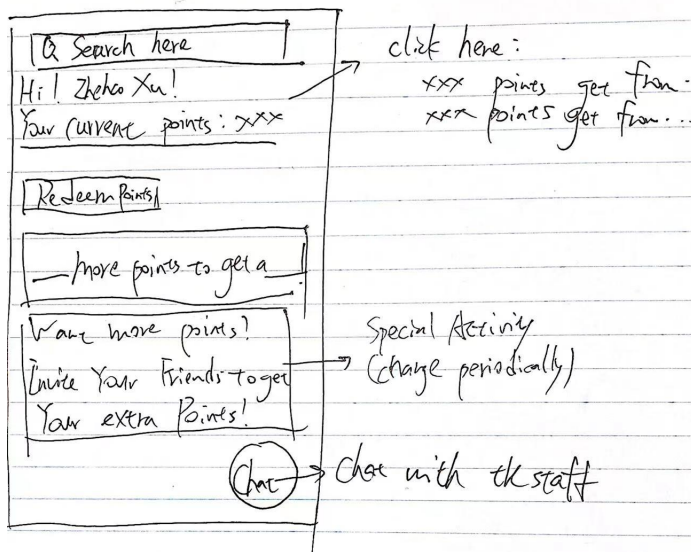 Search here
Hi! Zhehao Xu!
Your current points: xxx
Redeem Points
___ more points to get a ___!
Want more points?
Invite Your Friends to get
Your extra Points!
Chat
click here:
xxx points get from...
xxx points get from...
Special Activity
(change periodically)
Chat with tk staff